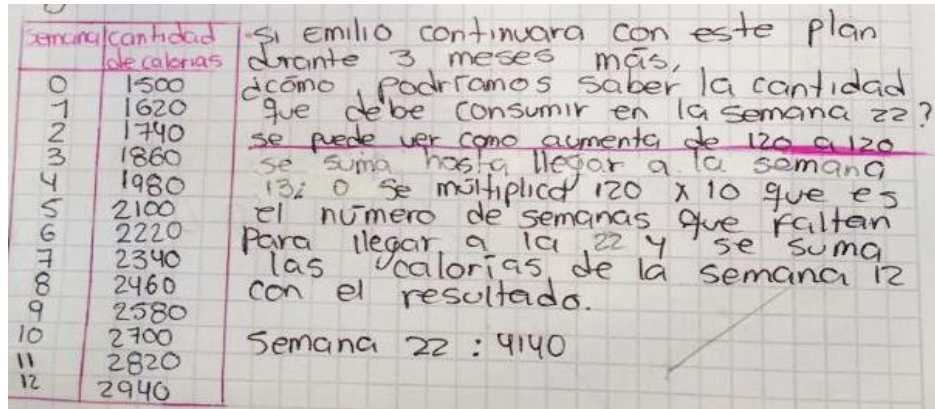 semana cantidad de calorias
0 1500
1 1620
2 1740
3 1860
4 1980
5 2100
6 2220
7 2340
8 2460
9 2580
10 2700
11 2820
12 2940
Si emilio continuara con este plan
durante 3 meses más,
¿cómo podríamos saber la cantidad
que debe consumir en la semana 22?
se puede ver como aumenta de 120 a 120
se suma hasta llegar a la semana
13; o se múltiplica 120 x 10 que es
el número de semanas que faltan
para llegar a la 22 y se suma
las calorías de la semana 12
con el resultado.
Semana 22 : 4140